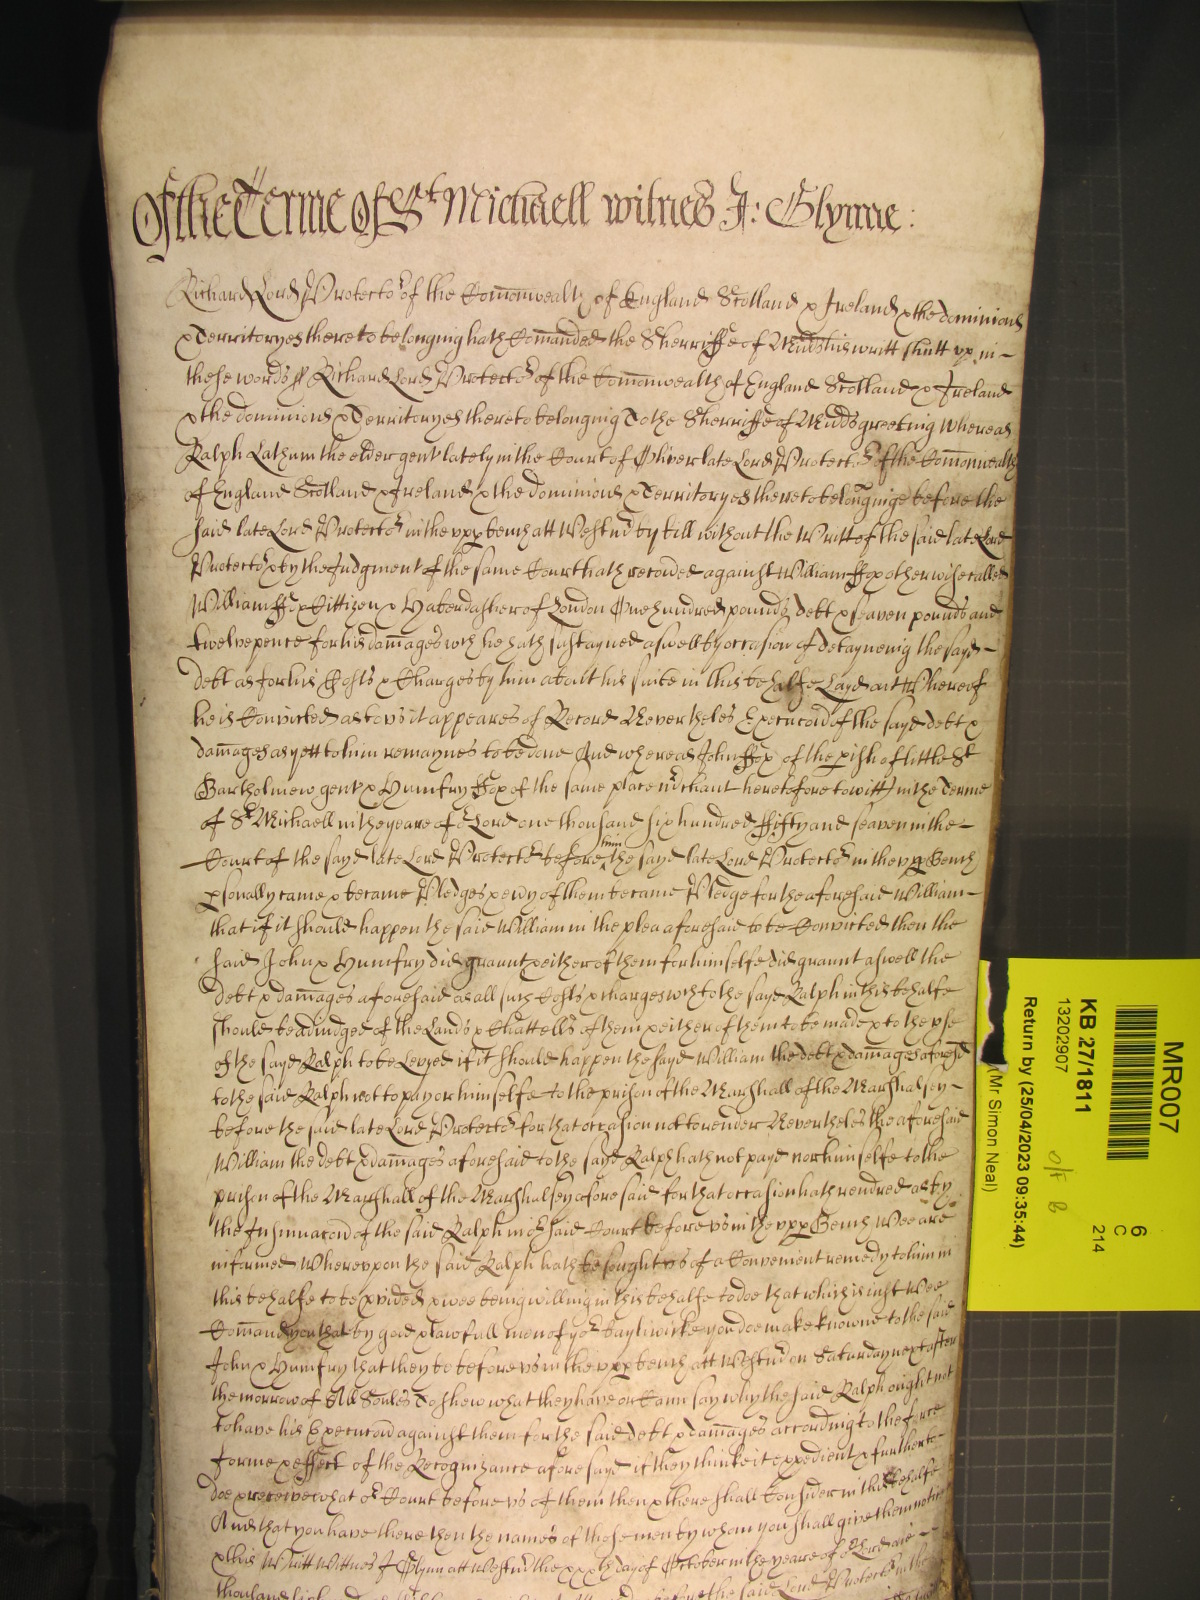 Of the Terme Of St Michaell witnes J: Glynne:
Richard Lord Protector of the Comonwealth of England Scotland & Ireland & the dominions
& Territoryes thereto belonging hath Comanded the Sherriffe of Midds his writt shutt vp in
these words ss Richard Lord Protector of the Comonwealth of England Scotland & Ireland
& the dominions & Territoryes thereto belonging To the Sherriffe of Midds greeting Whereas
Ralph Lathum the elder gent lately in the Court of Oliver late Lord Protector of the Comonwealth
of England Scotland & Ireland & the dominions & Territoryes thereto belonginge before the
said late Lord Protector in the vpp bench att Westmr by bill without the Writt of the said late Lord
Protector & by the Judgment of the same Court hath recovered against William ffox otherwise called
William ffox Cittizen & Haberdasher of London One hundred pounds debt & seaven pounds and
twelve pence for his damages wch he hath sustayned aswell by occasion of detayneing the sayd
debt as for his Costs & Charges by him about his suite in this behalfe Layd out Whereof
he is Convicted as to vs it appeares of Record Nevertheles Execucon of the sayd debt &
damages as yett to him remaynes to be done And whereas John ffox of the pish of little St
Bartholmew gent & Humfry ffox of the same place mrchant heretofore to witt in the Terme
of St Michaell in the yeare of or Lord one thousand six hundred ffifty and seaven in the
Court of the sayd late Lord Protector before him the sayd late Lord Protector in the vpp Bench
psonally came & became Pledges & evry of them became Pledge for the aforesaid William
that if it should happen the said William in the plea aforesaid to be Convicted then the
said John & Humfry did graunt & either of them for himselfe did graunt aswell the
debt & damages aforesaid as all such Costs & charges wch to the sayd Ralph in this behalfe
should be adiudged of the Lands & Chattells of them & either of them to be made & to the vse
of the sayd Ralph to be Levyed if it should happen the sayd William the debt & damages aforesd
to the said Ralph not to pay or himselfe to the prison of the Marshall of the Marshalsey
before the said late Lord Protector for that occasion not to render Neverthels the aforesaid
William the debt & damages aforesaid to the sayd Ralph hath not payd nor himselfe to the
prison of the Marshall of the Marshalsey aforesaid for that occasion hath rendred as by
the Insinuacon of the said Ralph in or said Court before vs in the vpp Bench Wee are
informed Wherevpon the said Ralph hath besought vs of a Convenient remedy to him in
this behalfe to be pvided & wee being willing in this behalfe to doe that which is iust Wee
Comand you that by good & lawfull men of yor Bayliwicke you doe make knowne to the said
John & Humfry that they be before vs in the vpp bench att Westmr on Saturday next after
the morrow of All Soules To shew what they have or Cann say why the said Ralph ought not
to have his Execucon against them for the said debt & damages according to the force
forme & effect of the Recognizance aforesayd if they thinke it expedient & further to
doe & receive what or Court before vs of them then & there shall Consider in this behalfe
And that you have there then the names of those men by whom you shall give them notice
& this Writt Wittnes J Glynn att Westmr the xxth day of October in the yeare of or Lord one
thousand
MR007
KB 27/1811
13202907
Return by (25/04/2023 09:35:44)
(Mr Simon Neal)
6
C
214